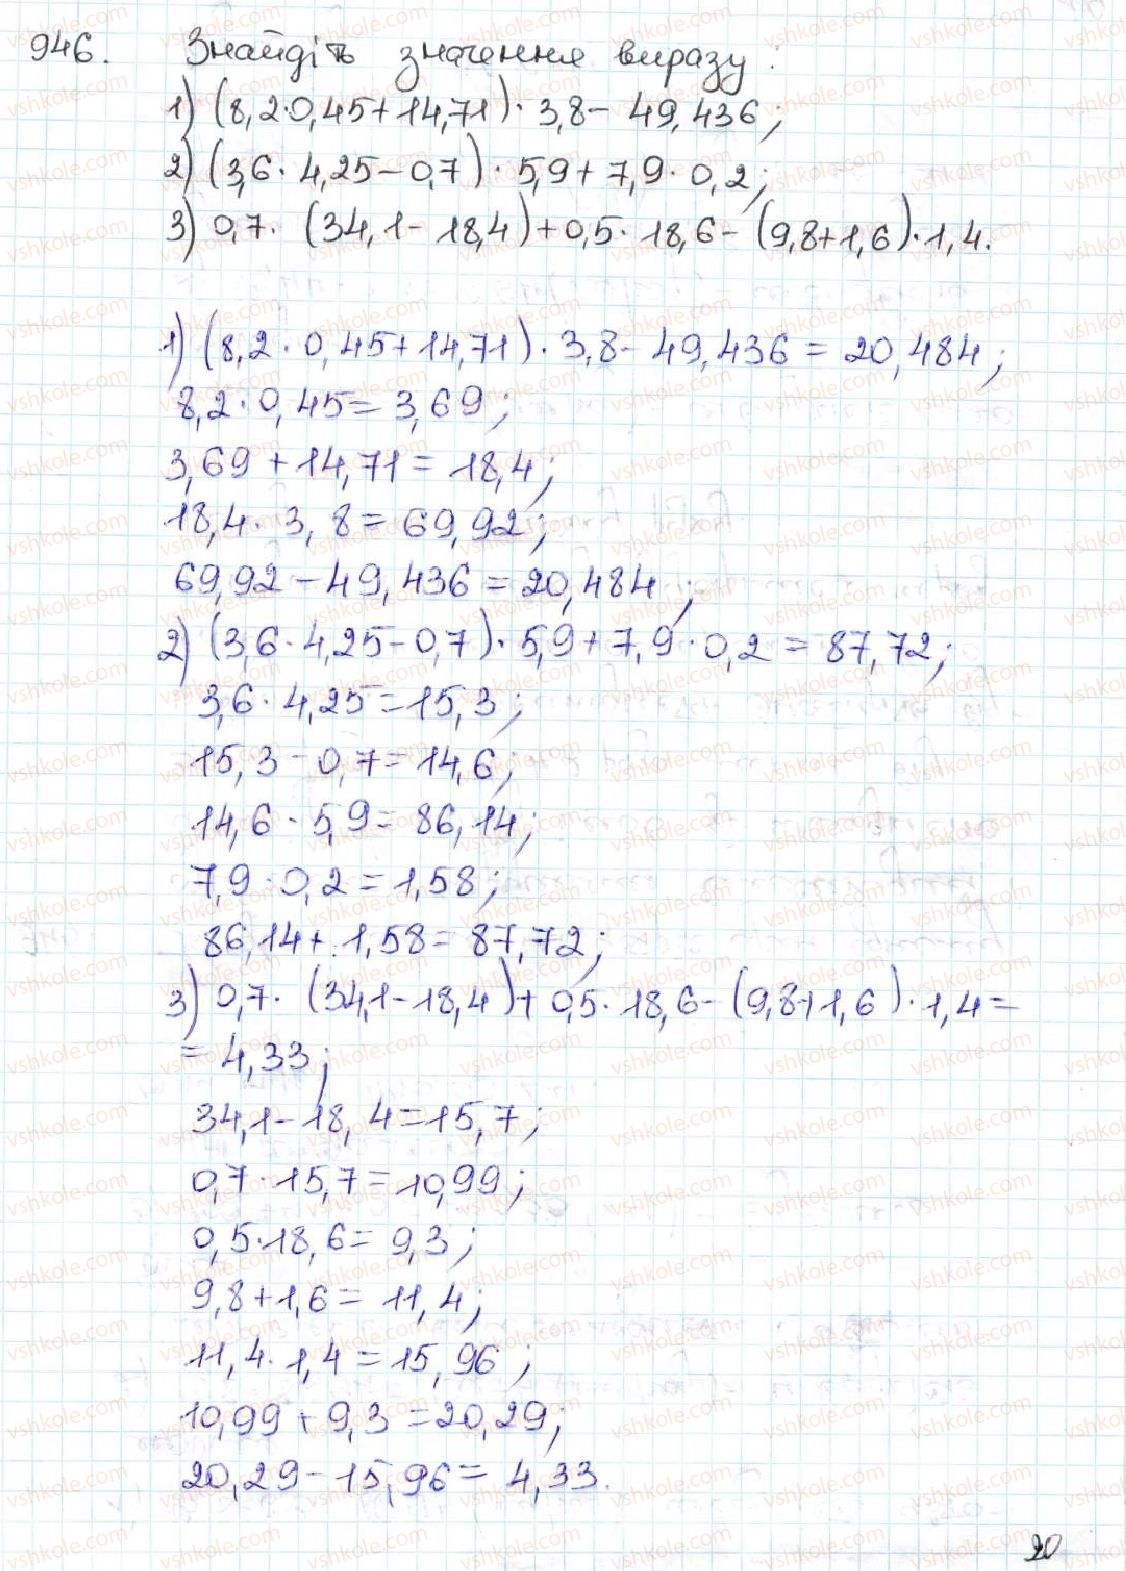 946. Знайдіть значення виразу:
1) (8,2·0,45+14,71)·3,8-49,436;
2) (3,6·4,25-0,7)·5,9+7,9·0,2;
3) 0,7·(34,1-18,4)+0,5·18,6-(9,8+1,6)·1,4.
1) (8,2·0,45+14,71)·3,8-49,436=20,484;
8,2·0,45=3,69;
3,69+14,71=18,4;
18,4·3,8=69,92;
69,92-49,436=20,484;
2) (3,6·4,25-0,7)·5,9+7,9·0,2=87,72;
3,6·4,25=15,3;
15,3-0,7=14,6;
14,6·5,9=86,14;
7,9·0,2=1,58;
86,14+1,58=87,72;
3) 0,7·(34,1-18,4)+0,5·18,6-(9,8+1,6)·1,4=
=4,33;
34,1-18,4=15,7;
0,7·15,7=10,99;
0,5·18,6=9,3;
9,8+1,6=11,4;
11,4·1,4=15,96;
10,99+9,3=20,29;
20,29-15,96=4,33.
20